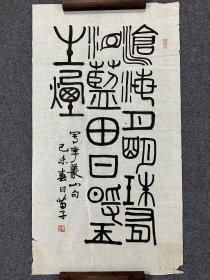 滄海月明珠有
泪藍田日暖玉
生煙
写李義山句
己未春日苗子